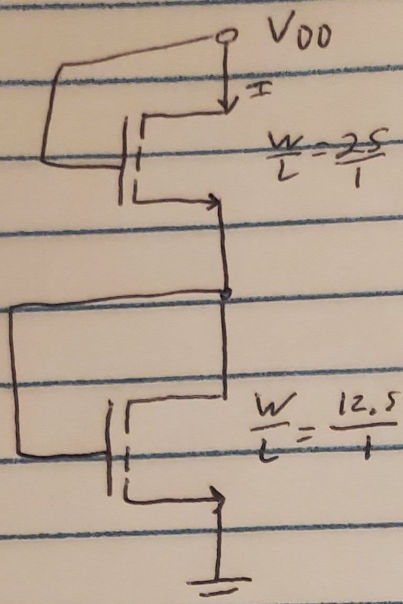 VDD
I
W/L = 25/1
W/L = 12.5/1